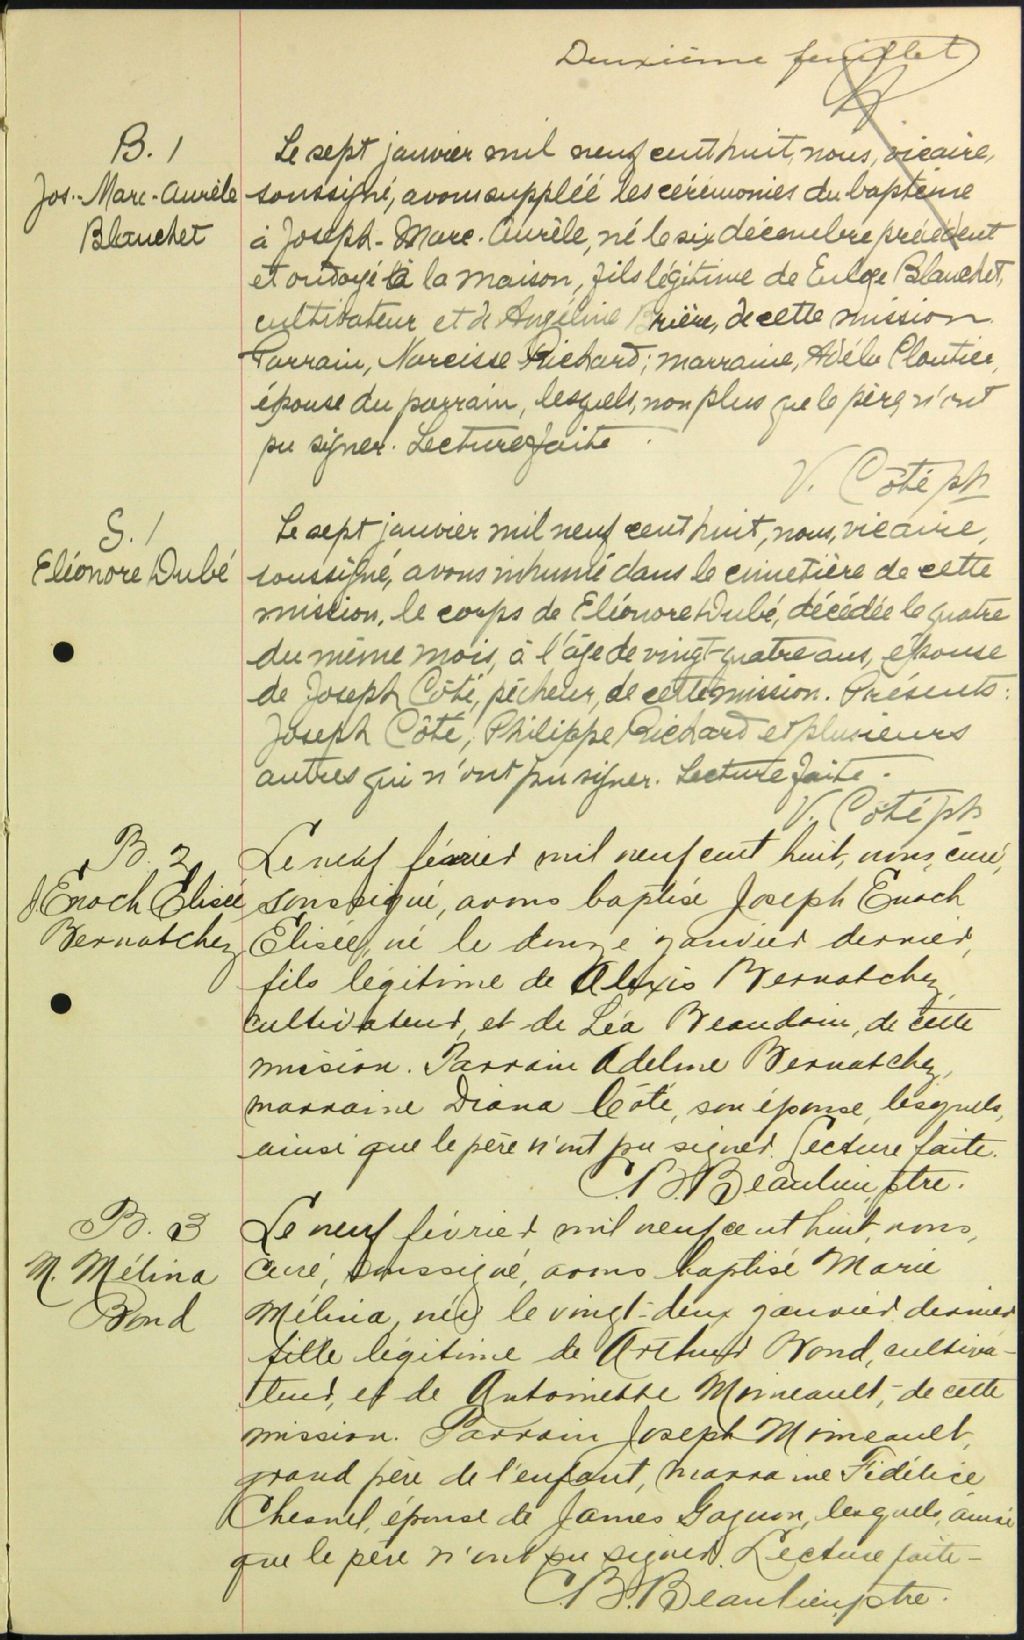 Deuxième feuillet
B. 1
Jos.-Marc-Aurèle
Blanchet
Le sept janvier mil neuf cent huit, nous, vicaire,
soussigné, avons suppléé les cérémonies du baptême
à Joseph-Marc-Aurèle, né le six décembre précédent
et ondoyé à la maison, fils légitime de Euloge Blanchet,
cultivateur et de Angéline Brière, de cette mission.
Parrain, Narcisse Richard; marraine, Adéla Cloutier,
épouse du parrain, lesquels, non plus que le père, n'ont
pu signer. Lecture faite.
V. Côté ptr
S. 1
Eléonore Dubé
Le sept janvier mil neuf cent huit, nous, vicaire,
soussigné, avons inhumé dans le cimetière de cette
mission, le corps de Eléonore Dubé, décédée le quatre
du même mois, à l'âge de vingt-quatre ans, épouse
de Joseph Côté, pêcheur, de cette mission. Présents:
Joseph Côté, Philippe Richard et plusieurs
autres qui n'ont pu signer. Lecture faite.
V. Côté ptr
B. 2
J Enoch Elisée
Bernatchez
Le neuf février mil neuf cent huit, nous, curé,
soussigné, avons baptisé Joseph Enoch
Elisée, né le douze janvier dernier,
fils légitime de Alexis Bernatchez
cultivateur, et de Léa Beaudoin, de cette
mission. Parrain Adelme Bernatchez,
marraine Diana Côté, son épouse, lesquels,
ainsi que le père n'ont pu signer. Lecture faite.
C.B. Beaulieu, ptre.
B. 3
M. Mélina
Bond
Le neuf février mil neuf cent huit, nous,
curé, soussigné, avons baptisé Marie
Mélina, née le vingt-deux janvier dernier
fille légitime de Arthur Bond, cultiva-
teur, et de Antoinette Moineault, de cette
mission. Parrain Joseph Moineault,
grand père de l'enfant, marraine Fidélice
Chesnel, épouse de James Gagnon, lesquels, ainsi
que le père n'ont pu signer. Lecture faite-
C.B. Beaulieu, ptre.